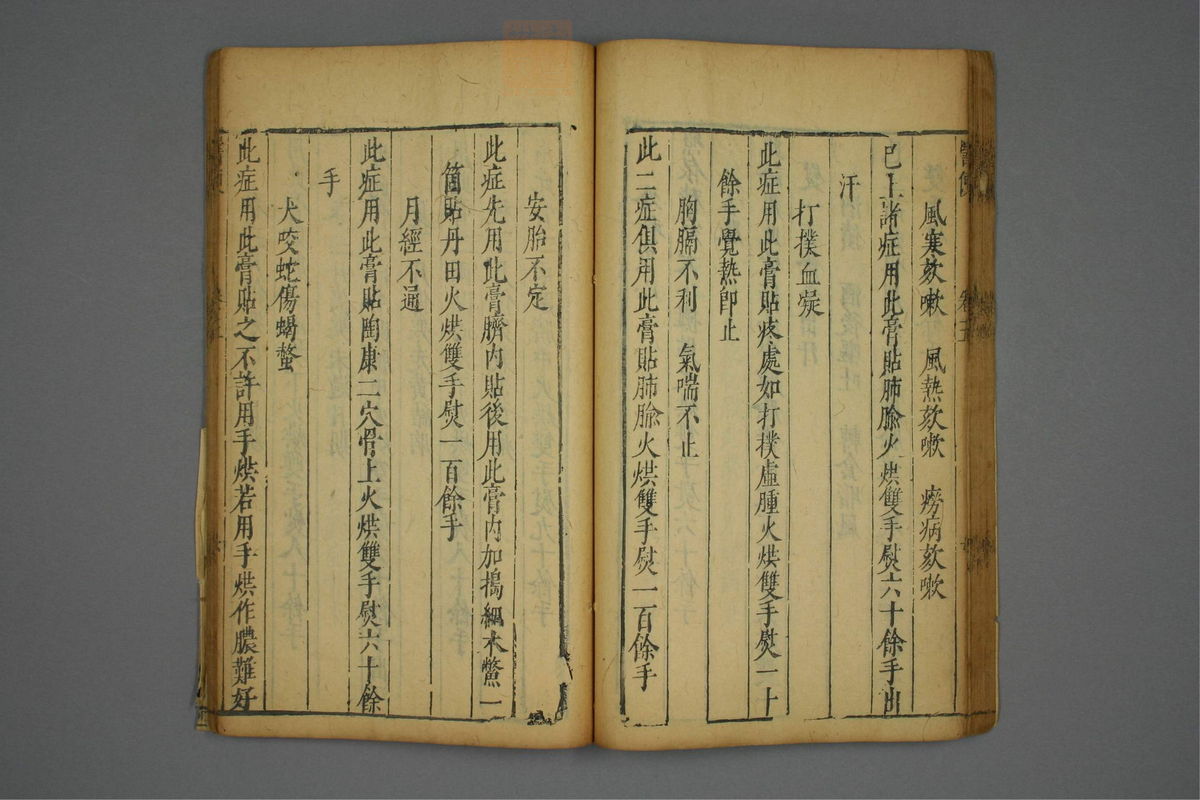 風寒欬嗽 風熱欬嗽 癆病欬嗽
已上諸症用此膏貼肺腧火烘雙手熨六十餘手出
汗
打撲血凝
此症用此膏貼疼處如打撲虛腫火烘雙手熨一十
餘手覺熱卽止
胸膈不利 氣喘不止
此二症俱用此膏貼肺腧火烘雙手熨一百餘手
安胎不定
此症先用此膏臍內貼後用此膏內加搗細木鱉一
箇貼丹田火烘雙手熨一百餘手
月經不通
此症用此膏貼陶康二穴骨上火烘雙手熨六十餘
手
犬咬蛇傷蝎螫
此症用此膏貼之不許用手烘若用手烘作膿難好